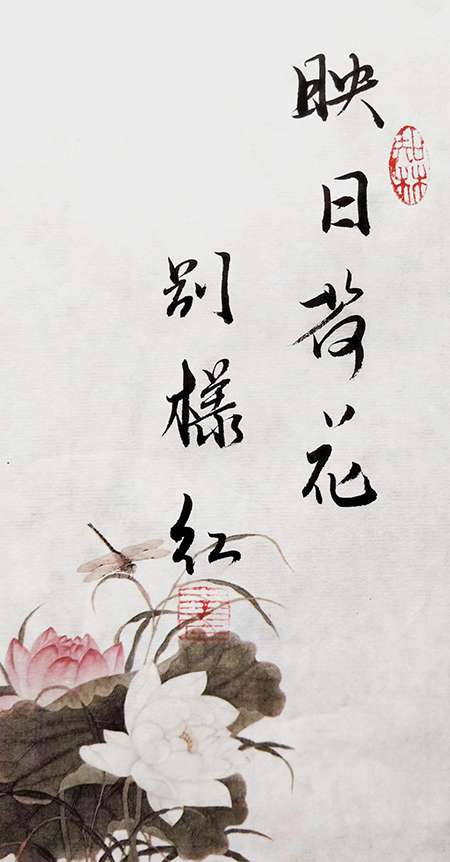 映日荷花
别樣红